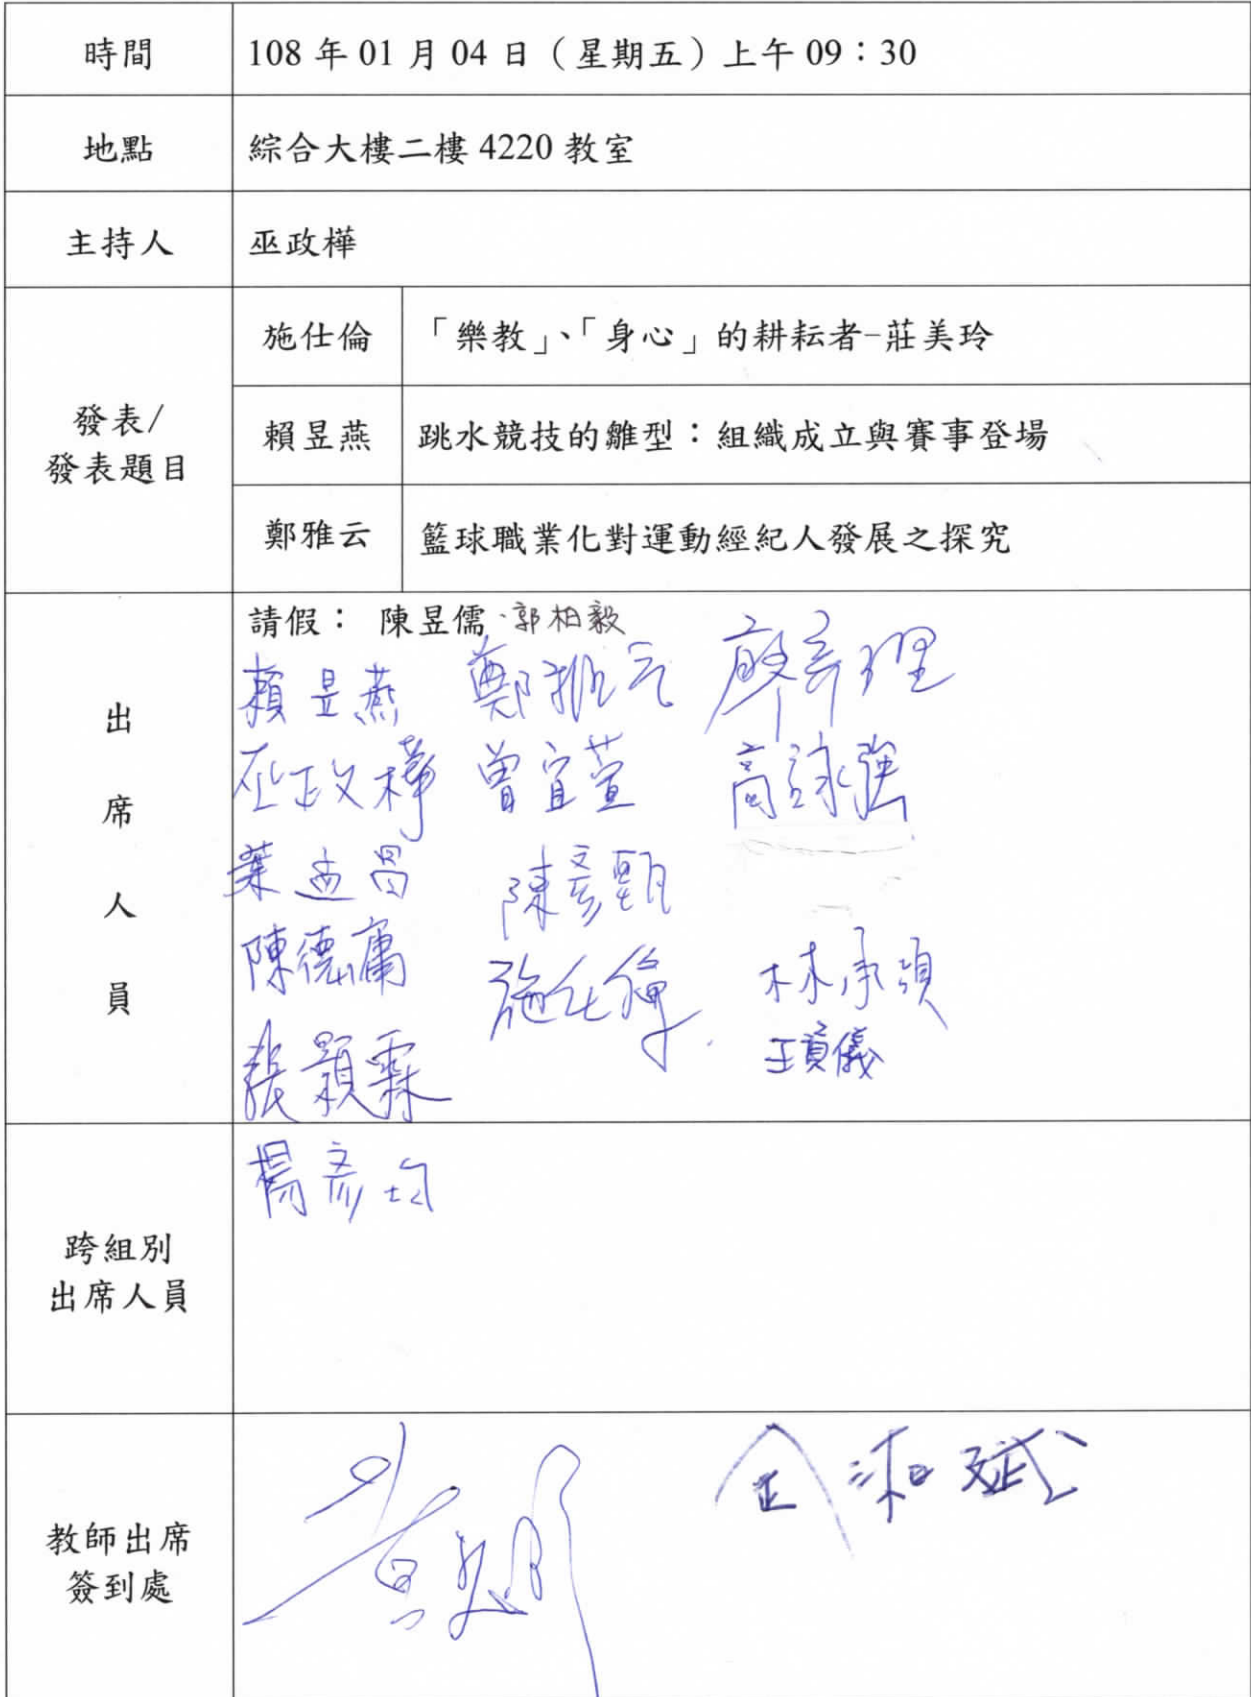 時間 108 年 01 月 04 日（星期五）上午 09：30
地點 綜合大樓二樓 4220 教室
主持人 巫政樺
發表/
發表題目
施仕倫 「樂教」、「身心」的耕耘者-莊美玲
賴昱燕 跳水競技的雛型：組織成立與賽事登場
鄭雅云 籃球職業化對運動經紀人發展之探究
出席人員
請假： 陳昱儒、郭柏毅
賴昱燕 鄭雅云
巫政樺 曾宜萱 高詠強
葉孟昌 陳彥甄
陳德庸 施仕倫 林承頌
張顥霖 王貞儀
跨組別
出席人員
楊彥均
教師出席
簽到處